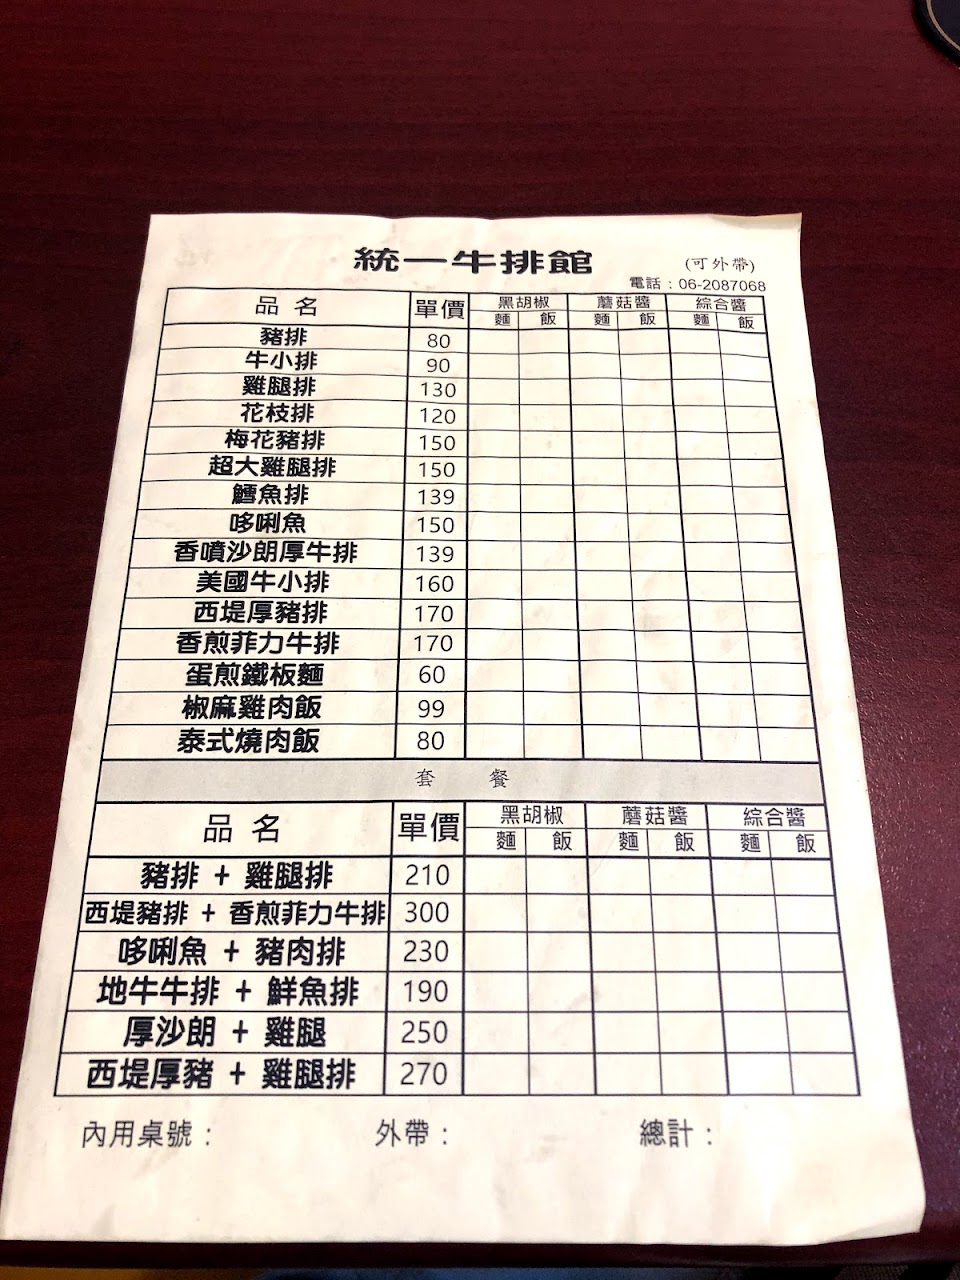 統一牛排館
(可外帶)
電話：06-2087068
品 名 單價 黑胡椒 蘑菇醬 綜合醬
麵 飯 麵 飯 麵 飯
豬排 80
牛小排 90
雞腿排 130
花枝排 120
梅花豬排 150
超大雞腿排 150
鱈魚排 139
哆唎魚 150
香噴沙朗厚牛排 139
美國牛小排 160
西堤厚豬排 170
香煎菲力牛排 170
蛋煎鐵板麵 60
椒麻雞肉飯 99
泰式燒肉飯 80
套 餐
品 名 單價 黑胡椒 蘑菇醬 綜合醬
麵 飯 麵 飯 麵 飯
豬排 + 雞腿排 210
西堤豬排 + 香煎菲力牛排 300
哆唎魚 + 豬肉排 230
地牛牛排 + 鮮魚排 190
厚沙朗 + 雞腿 250
西堤厚豬 + 雞腿排 270
內用桌號： 外帶： 總計：